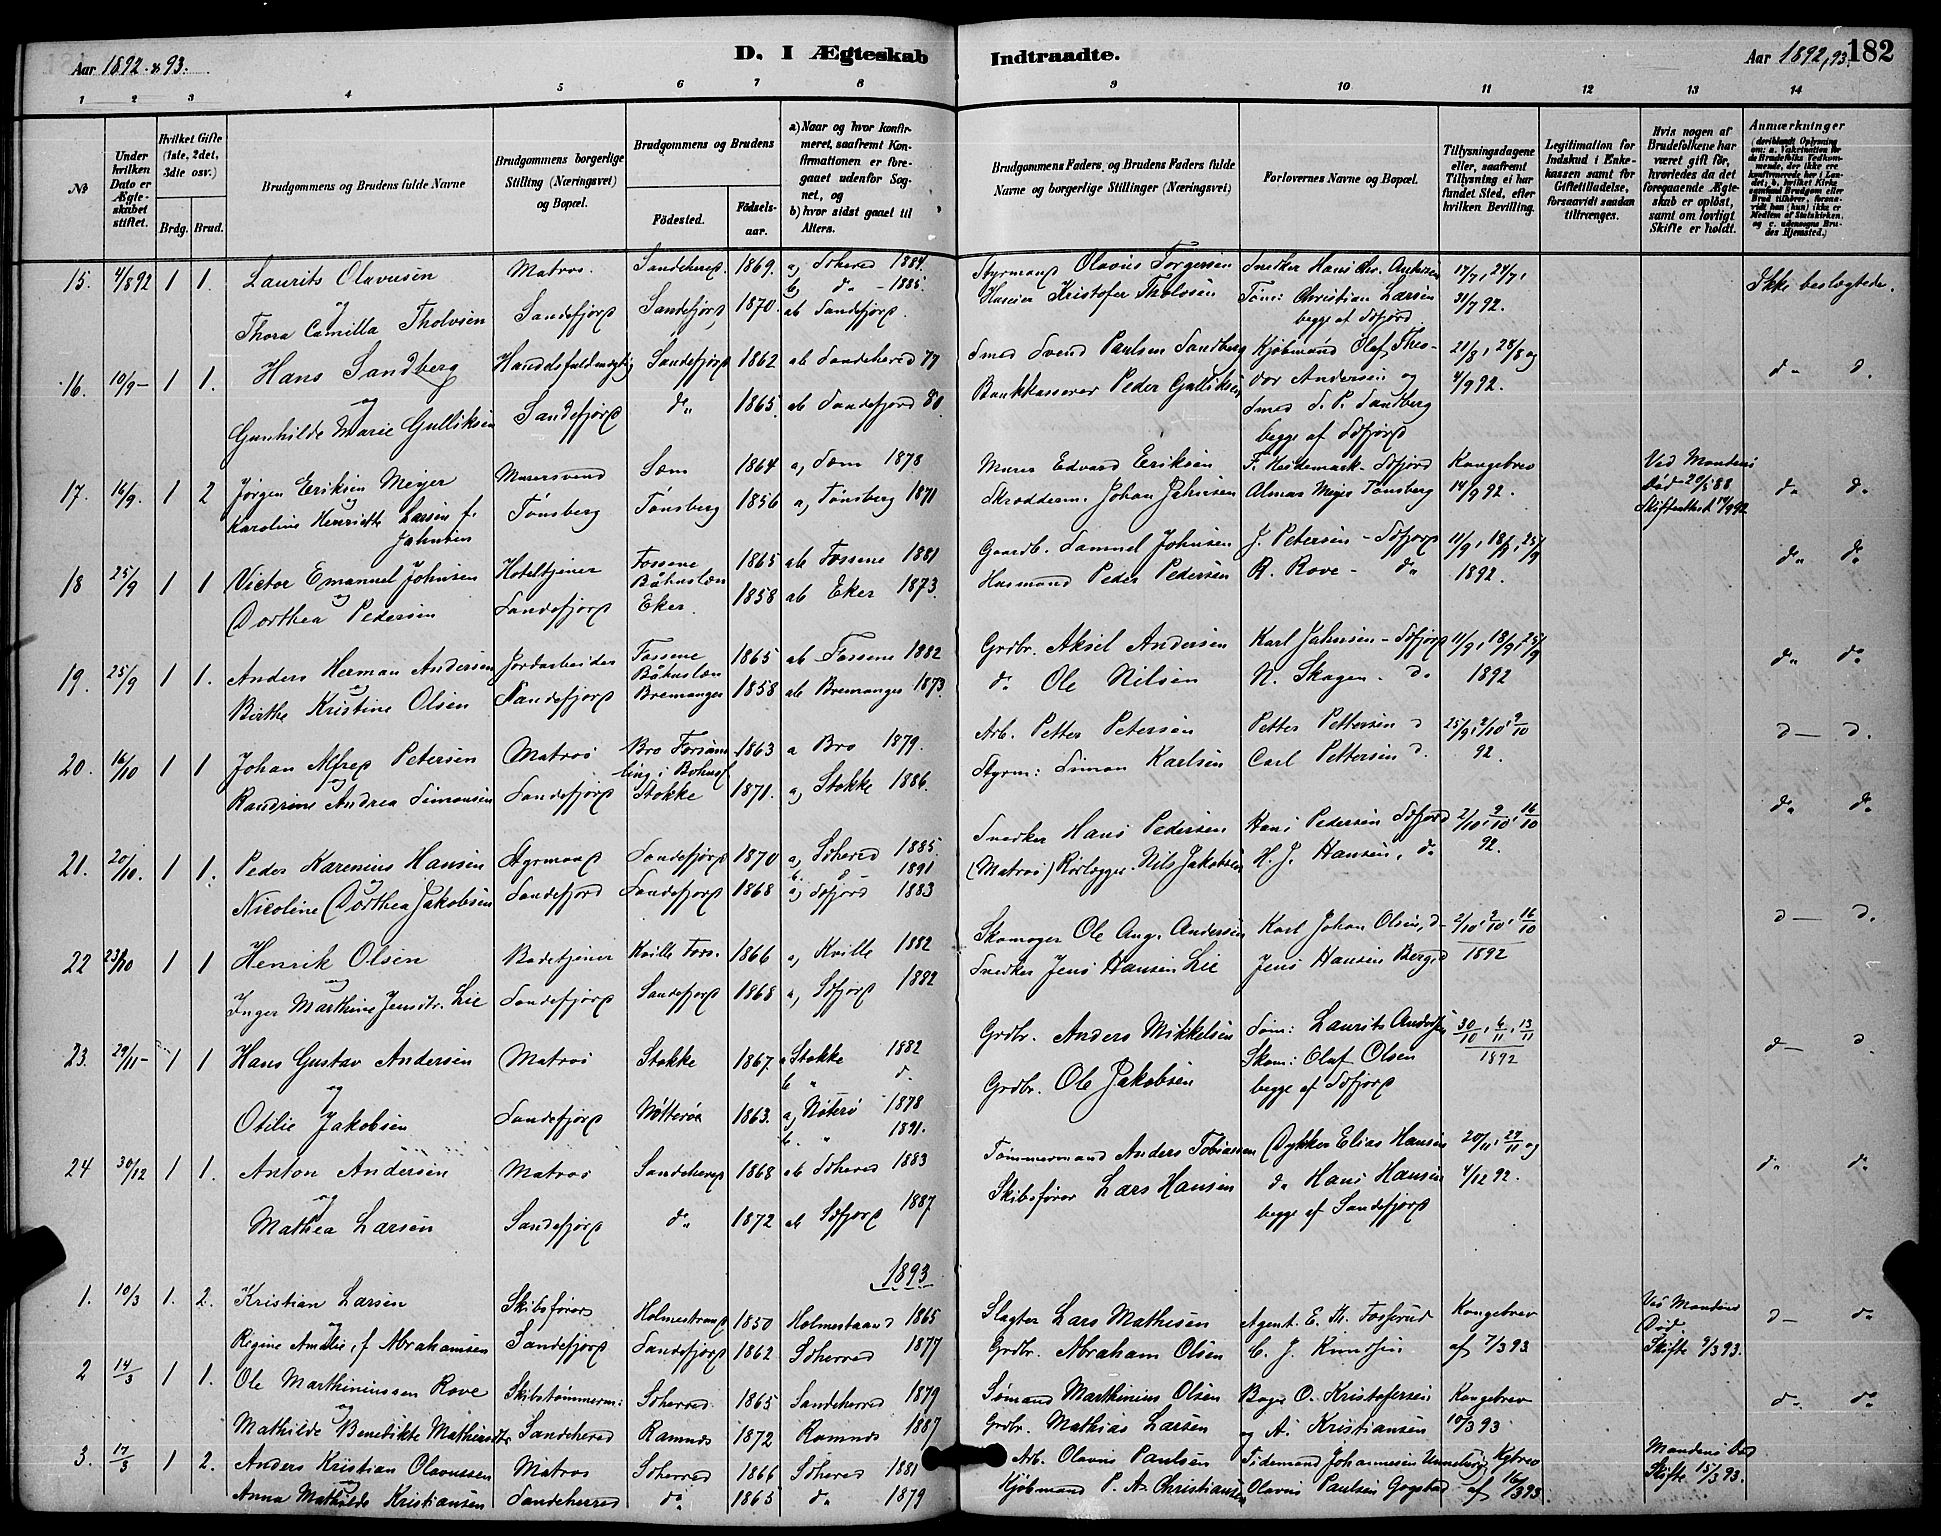 Aar 1892 & 93.
D. I Ægteskab Indtraadte.
Aar 1892, 93. 182
1 2 3 4 5 6 7 8 9 10 11 12 13 14
No
Under hvilken Dato er Ægte-skabet stiftet.
Hvilket Gifte (1ste, 2det, 3die osv.)
Brdg. Brud.
Brudgommens og Brudens fulde Navne
Brudgommens borgerlige Stilling (Næringsvei) og Bopæl.
Brudgommens og Brudens
Fødested. Fødsels-aar.
a) Naar og hvor konfir-meret, saafremt Kon-firmationen er fore-gaaet udenfor Sog-net, og
b) hvor sidst gaaet til Alters.
Brudgommens Faders og Brudens Faders fulde Navne og borgerlige Stillinger (Næringsvei)
Forlovernes Navne og Bopæl.
Tillysningsdagene eller, saafremt Tillysning ei har fundet Sted, efter hvilken Bevilling.
Legitimation for Indskud i Enke-kassen samt for Giftetilladelse, forsaavidt saadan tiltrænges.
Hvis nogen af Brudefolkene har været gift før, hvorledes da det foregaaende Ægte-skab er opløst, samt om lovligt Skifte er holdt.
Anmærkninger
15. 4/8 92 1 1. Laurits Olavusen Matros. Sandeherred 1869. a, Sdherred 1884. Styrmand Olavus Torgersen Snedker Hans Chr. Andersen 17/7, 24/7, Ikke beslægtede.
og b, do - 1885.
Thora Camilla Tholvsen Sandefjord Sandefjord 1870. ab Sandefjord. Huseier Kristofer Tholvsen Tøm: Christian Larsen 31/7 92.
begge af Sdfjord
16. 10/9 - 1 1. Hans Sandberg Handelsfuldmægtig Sandefjord 1862 ab Sandeherred 77 Smed Svend Paulsen Sandberg Kjøbmand Olaf Theo- 21/8, 28/8 og do do
og
Gunhilde Marie Gulliksen Sandefjord do 1865. ab Sandefjord 80. Bankkasserer Peder Gulliksen dor Andersen og 4/9 92.
Smed S. P. Sandberg
begge af Sdfjord
17. 16/9. 1 2 Jørgen Eriksen Meyer Murersvend Sem 1864 a, Sem 1878 Murer Edvard Eriksen F. Heidemark - Sdfjord Kongebrev Ved Mandens do do
og
Karoline Henriette Larsen f. Jahnsen Tønsberg Tønsberg 1856 a, Tønsberg 1871 Skrædderm. Johan Jahnsen Almar Meyer Tønsberg 14/9 92. Død 29/5 88
Skifteattest 14/9 92
18 25/9 1 1 Victor Emanuel Johnsen Hoteltjener Fossene Båhuslæn 1865 ab Fossene 1881 Gaardb. Samuel Johnsen J. Petersen - Sdfjord 11/9, 18/9, 25/9 do do
og
Dorthea Pedersen Sandefjord Eker. 1858 ab Eker 1873. Husmand Peder Pedersen R. Rove - do 1892.
19. 25/9 1 1. Anders Herman Andersen Jordarbeider Fossene Båhuslæn 1865 ab Fossene 1882 Grdbr. Aksel Andersen Karl Jahnsen - Sdfjord 11/9, 18/9, 25/9 do do
og
Birthe Kristine Olsen Sandefjord Bremanger 1858 ab Bremanger 1873. do Ole Nilsen N. Skagen - do 1892
20. 16/10 1 1 Johan Alfred Petersen Matros Bro Forsam ling i Bohusl 1863 a Bro 1879. Arb. Petter Petersen Petter Pettersen d 25/9, 2/10, 9/10 d - d.
og
Randrine Andrea Simonsen Sandefjord Stokke 1871. a, Stokke 1886. Styrm: Simon Karlsen Carl Pettersen d. 92.
21. 20/10. 1 1. Peder Karenius Hansen Styrmand Sandefjord 1870 a, Sdherred 1885. Snedker Hans Pedersen Hans Pedersen Sdfjord 2/10, 9/10, 16/10 do do
og b. d 1891
Nicoline Dorthea Jakobsen Sandefjord Sandefjord 1868 a, Sdfjord 1883 (Matros) Rørlægger Nils Jakobsen H. J. Hansen, do 92.
22 23/10 1 1 Henrik Olsen Badetjener Kville Fors. 1866 a, Kville 1882 Skomager Ole Aug. Andersen Karl Johan Olsen, d 2/10, 9/10, 16/10 d - d.
og
Inger Marthine Jensdtr. Lie Sandefjord Sandefjord 1868 a, Sdfjord 1882 Snedker Jens Hansen Lie Jens Hansen Berg d 1892
23. 29/11 - 1 1 Hans Gustav Andersen Matros Stokke 1867. a Stokke 1882 Grdbr. Anders Mikkelsen Tøm: Laurits Andersen 30/10, 6/11, 13/11 d - d.
og b " d.
Otilie Jakobsen Sandefjord Nøtterøe 1863. a, Nøterø 1878 Grdbr. Ole Jakobsen Skom: Olaf Olsen 1892
b. " 1891. begge af Sdfjord
24 30/12 1 1. Anton Andersen Matros Sandeherred 1868 ab Sdherred 1883 Tømmermand Anders Tobiassen Dykker Elias Hansen 20/11, 27/11 og do do
og
Mathea Larsen Sandefjord do 1872 ab Sdfjord 1887 Skibsfører Lars Hansen do Hans Hansen 4/12 92.
begge af Sandefjord
1893
1. 10/3 1. 2. Kristian Larsen Skibsfører Holmestrand 1850 Holmestrand 1865 Slagter Lars Mathisen Agent. E. M. Fosserud Kongebrev Ved Mandens d - do
og Død
Regine Amalie, f Abrahamsen Sandefjord Sandefjord 1862 Sdherred 1877 Grdbr. Abraham Olsen C. J. Knudsen af 7/3 93 Skifte 9/3 93.
2 14/3 1 1. Ole Marthiniussen Rove Skibstømmerm: Sdherred 1865 Sandeherred 1879 Sømand Marthinius Olsen Bager O. Kristofersen Kongebrev do do
og
Mathilde Benedikte Mathiasdtr Sandeherred Ramnes 1872 Ramnes 1887 Grdbr. Mathias Larsen og A. Kristiansen 10/3 93
3. 17/3 1 2. Anders Kristian Olavussen Matros Sdherred 1866 Sdherred 1881 Arb. Olavus Paulsen Tidemand Johannesen Unneberg Kgbrev Mandens Død
og
Anna Mathilde Kristiansen Sandeherred do 1865 do 1879 Kjøbmand P. A. Christiansen Olavus Paulsen Gogstad af 16/3 93 Skifte 15/3 93.